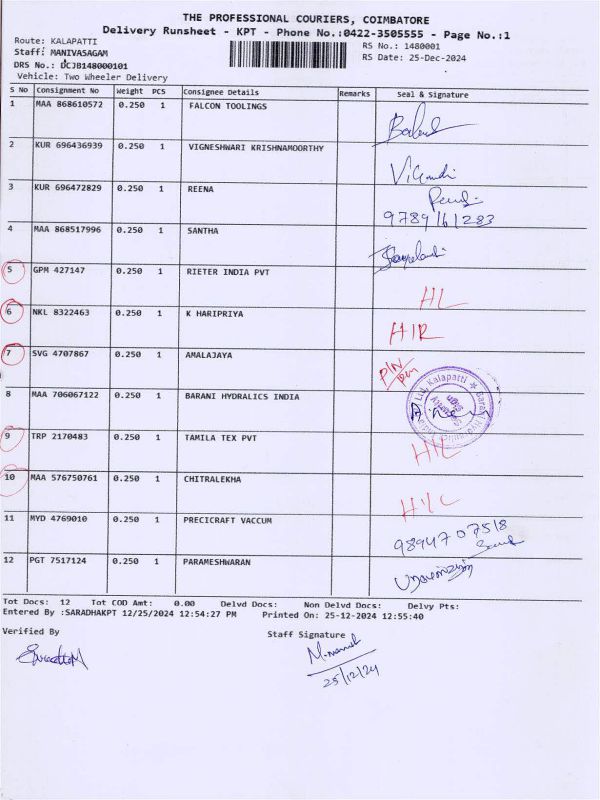 THE PROFESSIONAL COURIERS, COIMBATORE
Delivery Runsheet - KPT - Phone No.:0422-3505555 - Page No.:1
Route: KALAPATTI
RS No.: 1480001
Staff: MANIVASAGAM
RS Date: 25-Dec-2024
DRS No.: DCJB148000101
Vehicle: Two Wheeler Delivery
S No Consignment No Weight PCS Consignee Details Remarks Seal & Signature
1 MAA 868610572 0.250 1 FALCON TOOLINGS
2 KUR 696436939 0.250 1 VIGNESHWARI KRISHNAMOORTHY
3 KUR 696472829 0.250 1 REENA
9789161283
4 MAA 868517996 0.250 1 SANTHA
5 GPM 427147 0.250 1 RIETER INDIA PVT
HL
6 NKL 8322463 0.250 1 K HARIPRIYA
HIR
7 SVG 4707867 0.250 1 AMALAJAYA
8 MAA 706067122 0.250 1 BARANI HYDRALICS INDIA
9 TRP 2170483 0.250 1 TAMILA TEX PVT
10 MAA 576750761 0.250 1 CHITRALEKHA
11 MYD 4769010 0.250 1 PRECICRAFT VACCUM
9894707518
12 PGT 7517124 0.250 1 PARAMESHWARAN
Tot Docs: 12 Tot COD Amt: 0.00 Delvd Docs: Non Delvd Docs: Delvy Pts:
Entered By :SARADHAKPT 12/25/2024 12:54:27 PM Printed On: 25-12-2024 12:55:40
Verified By
Staff Signature
25/12/24